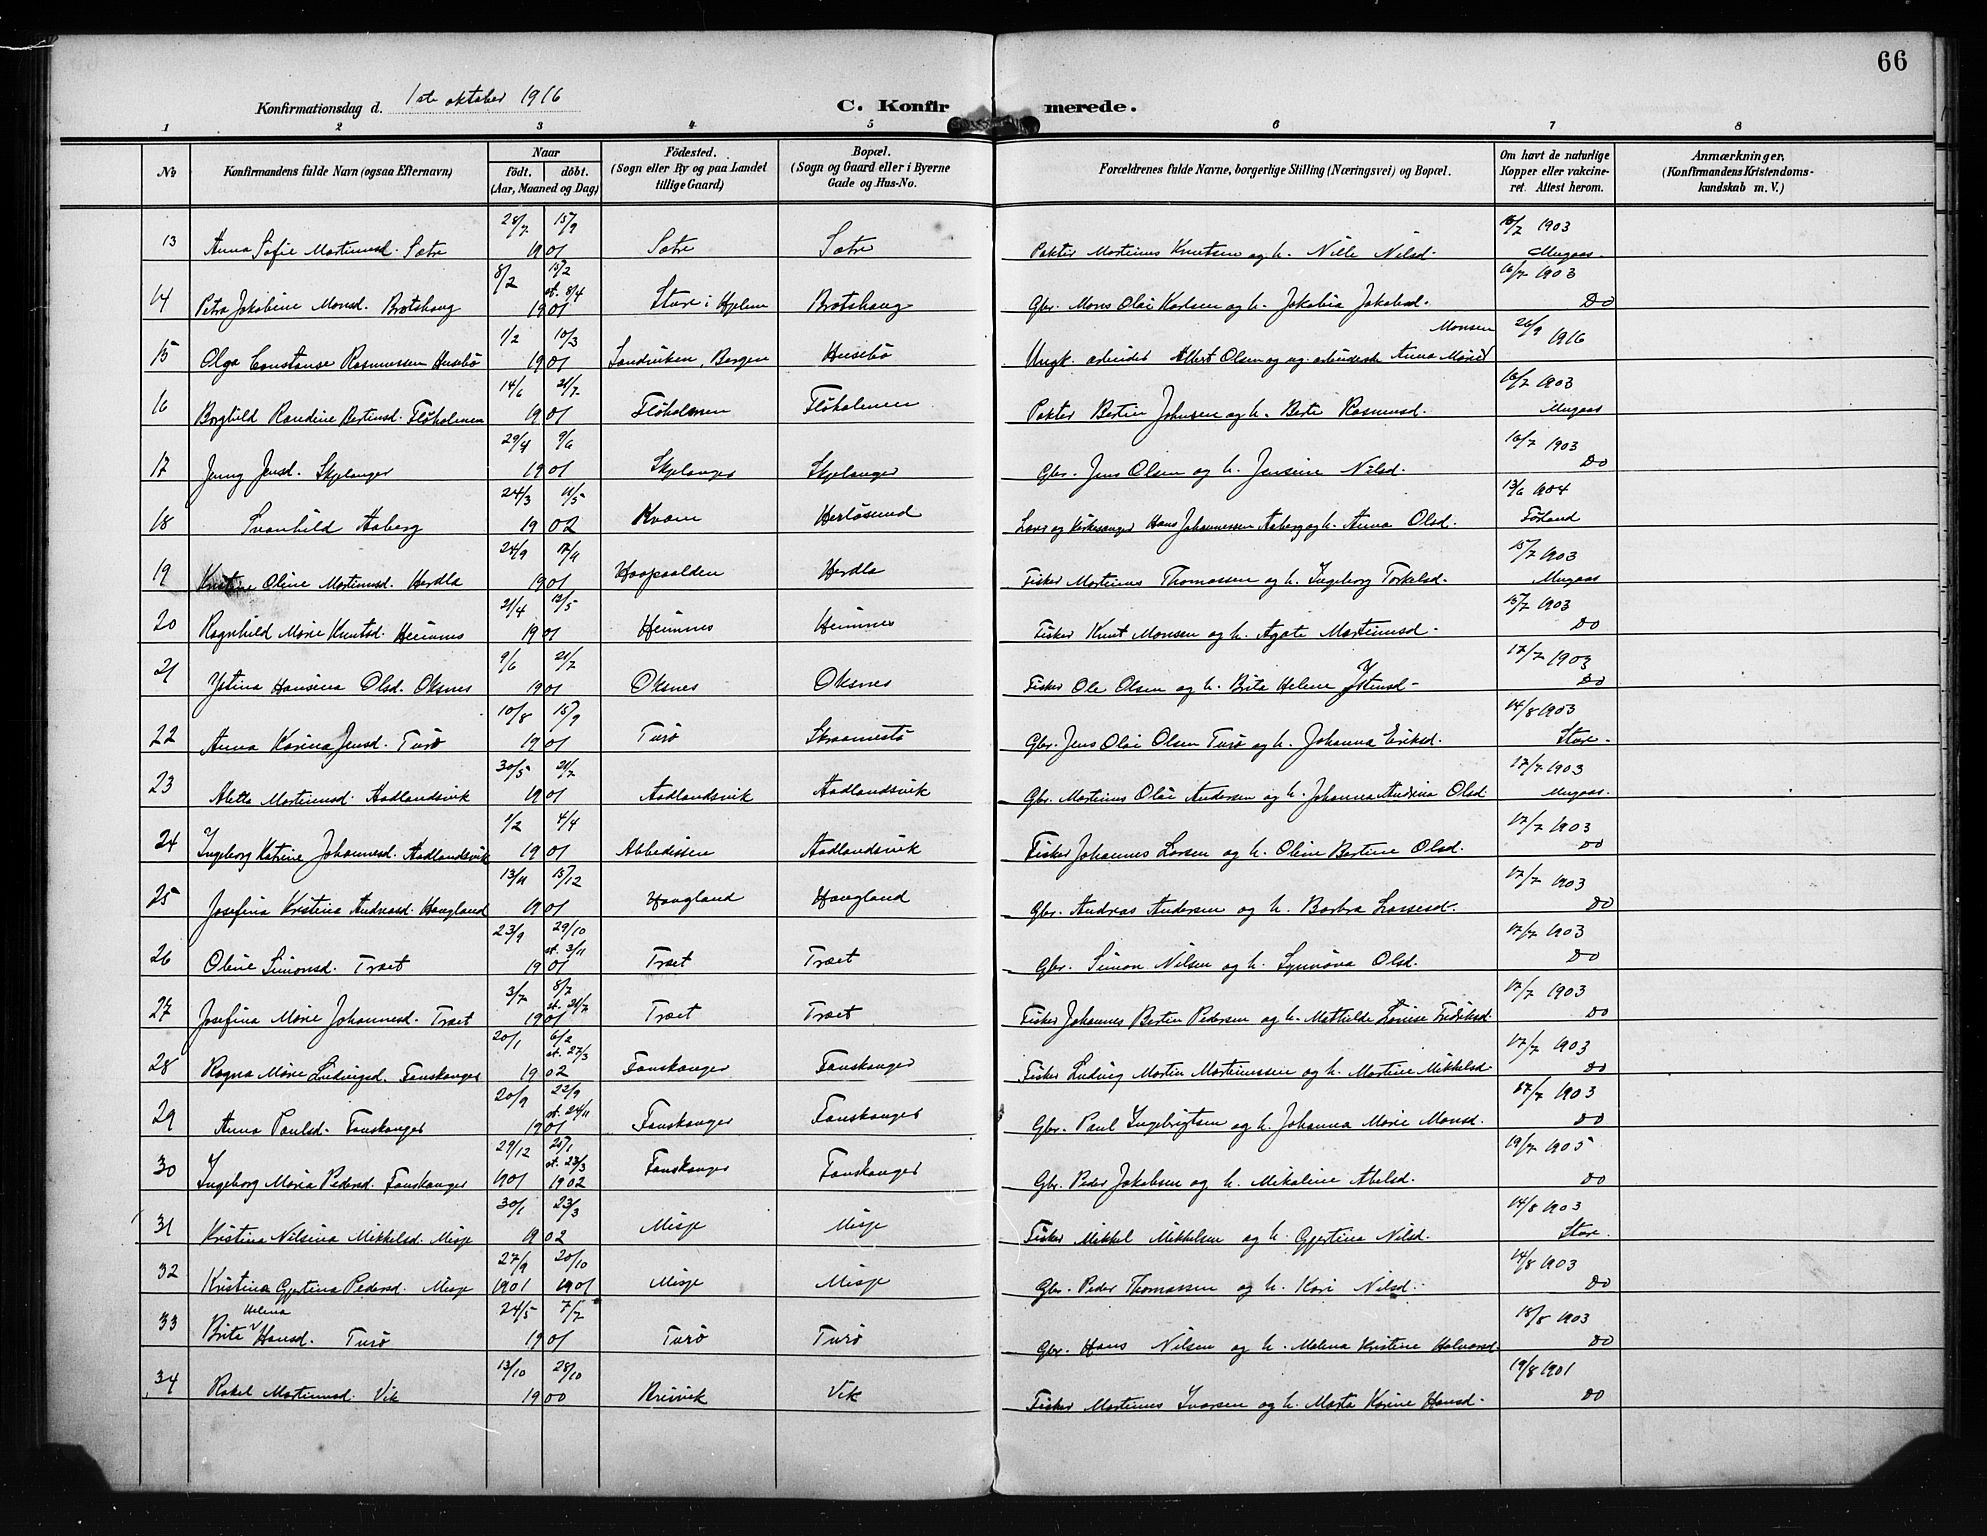 66
Konfirmationsdag d. 1ste oktober 1916
C. Konfirmerede.
1 2 3 4 5 6 7 8
No
Konfirmandens fulde Navn (ogsaa Efternavn)
Naar
födt. döbt.
(Aar, Maaned og Dag)
Födested.
(Sogn eller By og paa Landet
tillige Gaard)
Bopæl.
(Sogn og Gaard eller i Byerne
Gade og Hus-No.
Forældrenes fulde Navne, borgerlige Stilling (Næringsvei) og Bopæl.
Om havt de naturlige
Kopper eller vakcine-
ret. Attest herom.
Anmærkninger.
(Konfirmandens Kristendoms-
kundskab m. V.)
13 Anna Sofie Martinusd. Sætre 28/7 15/9 1901 Sætre Sætre Pakter Martinus Knutsen og h. Nille Nilsd. 1903 Mugaas
14 Petra Jakobine Monsd. Brotshaug 8/2 15/2 st. 8/4 1901 Sture i Hjelme Brotshaug Gbr. Mons Olai Karlsen og h. Jakobia Jakobsd. 16/7 1903 Do
15 Olga Constanse Rasmussen Husebø 1/2 10/3 1901 Sandviken, Bergen Husebø Ungk. arbeider Albert Olsen og ug. arbeiderske Anna Marie Monsen 26/9 1916
16 Borghild Randine Bertinsd. Fløholmen 14/6 21/7 1901 Fløholmen Fløholmen Pakter Bertin Johnsen og h. Berte Rasmusd. 16/7 1903 Mugaas
17 Jenny Jensd. Skjelanger 29/4 9/6 1901 Skjelanger Skjelanger Gbr. Jens Olsen og h. Jensine Nilsd. 16/7 1903 Do
18 Svanhild Aaberg 24/3 11/5 1902 Kvam Herløsund Lærer og kirkesanger Hans Johannessen Aaberg og h. Anna Olsd. 13/6 1904 Førland
19 Kristine Oline Martinusd. Herdla 24/9 17/11 1901 Haapoalden Herdla Fisker Martinus Thomassen og h. Ingeborg Torkelsd. 15/7 1903 Mugaas
20 Ragnhild Marie Knutsd. Heimnes 21/4 12/5 1901 Heimnes Heimnes Fisker Knut Monsen og h. Agate Martinusd. 15/7 1903 Do
21 Ystina Hansina Olsd. Oksnes 9/6 21/7 1901 Oksnes Oksnes Fisker Ole Olsen og h. Brita Helene Ystensd. 17/7 1903 Do
22 Anna Karina Jensd. Turø 10/8 15/9 1901 Turø Skraamestø Gbr. Jens Olai Olsen Turø og h. Johanna Eriksd. 14/8 1903 Støre
23 Aletta Martinusd. Aadlandsvik 30/5 21/7 1901 Aadlandsvik Aadlandsvik Gbr. Martinus Olai Andersen og h. Johanna Andrina Olsd. 17/7 1903 Mugaas.
24 Ingeborg Katrine Johannesd. Aadlandsvik 1/2 4/4 1901 Abbedissen Aadlandsvik Fisker Johannes Larsen og h. Oline Bertine Olsd. 17/7 1903 Do
25 Josefina Kristina Andreasd. Haugland 13/11 15/12 1901 Haugland Haugland Gbr. Andreas Andersen og h. Barbra Lassesd. 17/7 1903 Do
26 Oline Simonsd. Træet 23/9 29/10 st. 3/11 1901 Træet Træet Gbr. Simon Nilsen og h. Synnøva Olsd. 17/7 1903 Do
27 Josefina Marie Johannesd. Træet 3/7 8/7 st. 21/7 1901 Træet Træet Fisker Johannes Bertin Pedersen og h. Mathilde Lovise Fredriksd. 17/7 1903 Do
28 Ragna Marie Ludvigsd. Fauskanger 20/1 6/2 st. 27/3 1902 Fauskanger Fauskanger Fisker Ludvig Martin Martinussen og h. Martine Mikkelsd. 17/7 1903 Do
29 Anna Paulsd. Fauskanger 20/9 22/9 st. 24/11 1901 Fauskanger Fauskanger Gbr. Paul Ingebrigtsen og h. Johanna Marie Monsd. 17/7 1903 Do
30 Ingeborg Maria Pedersd. Fauskanger 29/12 1901 25/1 st. 23/3 1902 Fauskanger Fauskanger Gbr. Peder Jakobsen og h. Mikaline Abelsd. 19/7 1905 Do
31 Kristina Nilsina Mikkelsd. Misje 30/1 23/3 1902 Misje Misje Fisker Mikkel Mikkelsen og h. Gjertina Nilsd. 14/8 1903 Støre.
32 Kristina Gjertina Pedersd. Misje 27/9 1901 20/10 1901 Misje Misje Gbr. Peder Thomassen og h. Kari Nilsd. 14/8 1903 Do
33 Brita Helena Hansd. Turø 24/5 7/7 1901 Turø Turø Gbr. Hans Nilsen og h. Malena Kristine Halvorsd. 18/8 1903 Do
34 Rakel Martinusd. Vik 13/10 28/10 1900 Breivik Vik Fisker Martinus Ivarsen og h. Marta Karine Hansd. 19/8 1901 Do